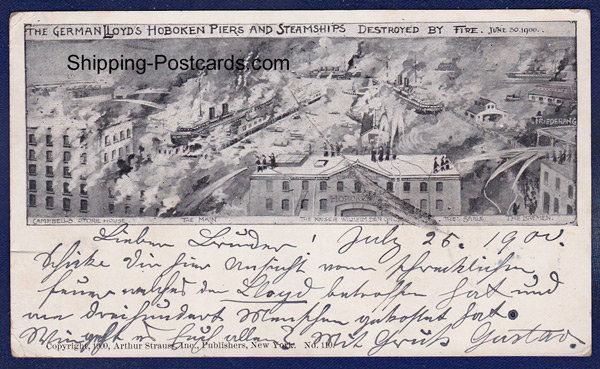 THE GERMAN LLOYD'S HOBOKEN PIERS AND STEAMSHIPS DESTROYED BY FIRE. JUNE 30, 1900.
Shipping-Postcards.com
FRIEDERANG
HOBOKEN
CAMPBELL'S STORE HOUSE THE MAIN THE KAISER WILHELM DER GR. THE SAALE THE BREMEN.
Lieben Bruder! July 25. 1900.
Schicke Dir hier Ansicht vom schrecklichen
Feuer welches den Lloyd betroffen hat und
an dreihundert Menschen gekostet hat.
Euch allen? Mit Gruß Gustav.
Copyright, 1900, Arthur Strauss, Inc., Publishers, New York. No. 110.